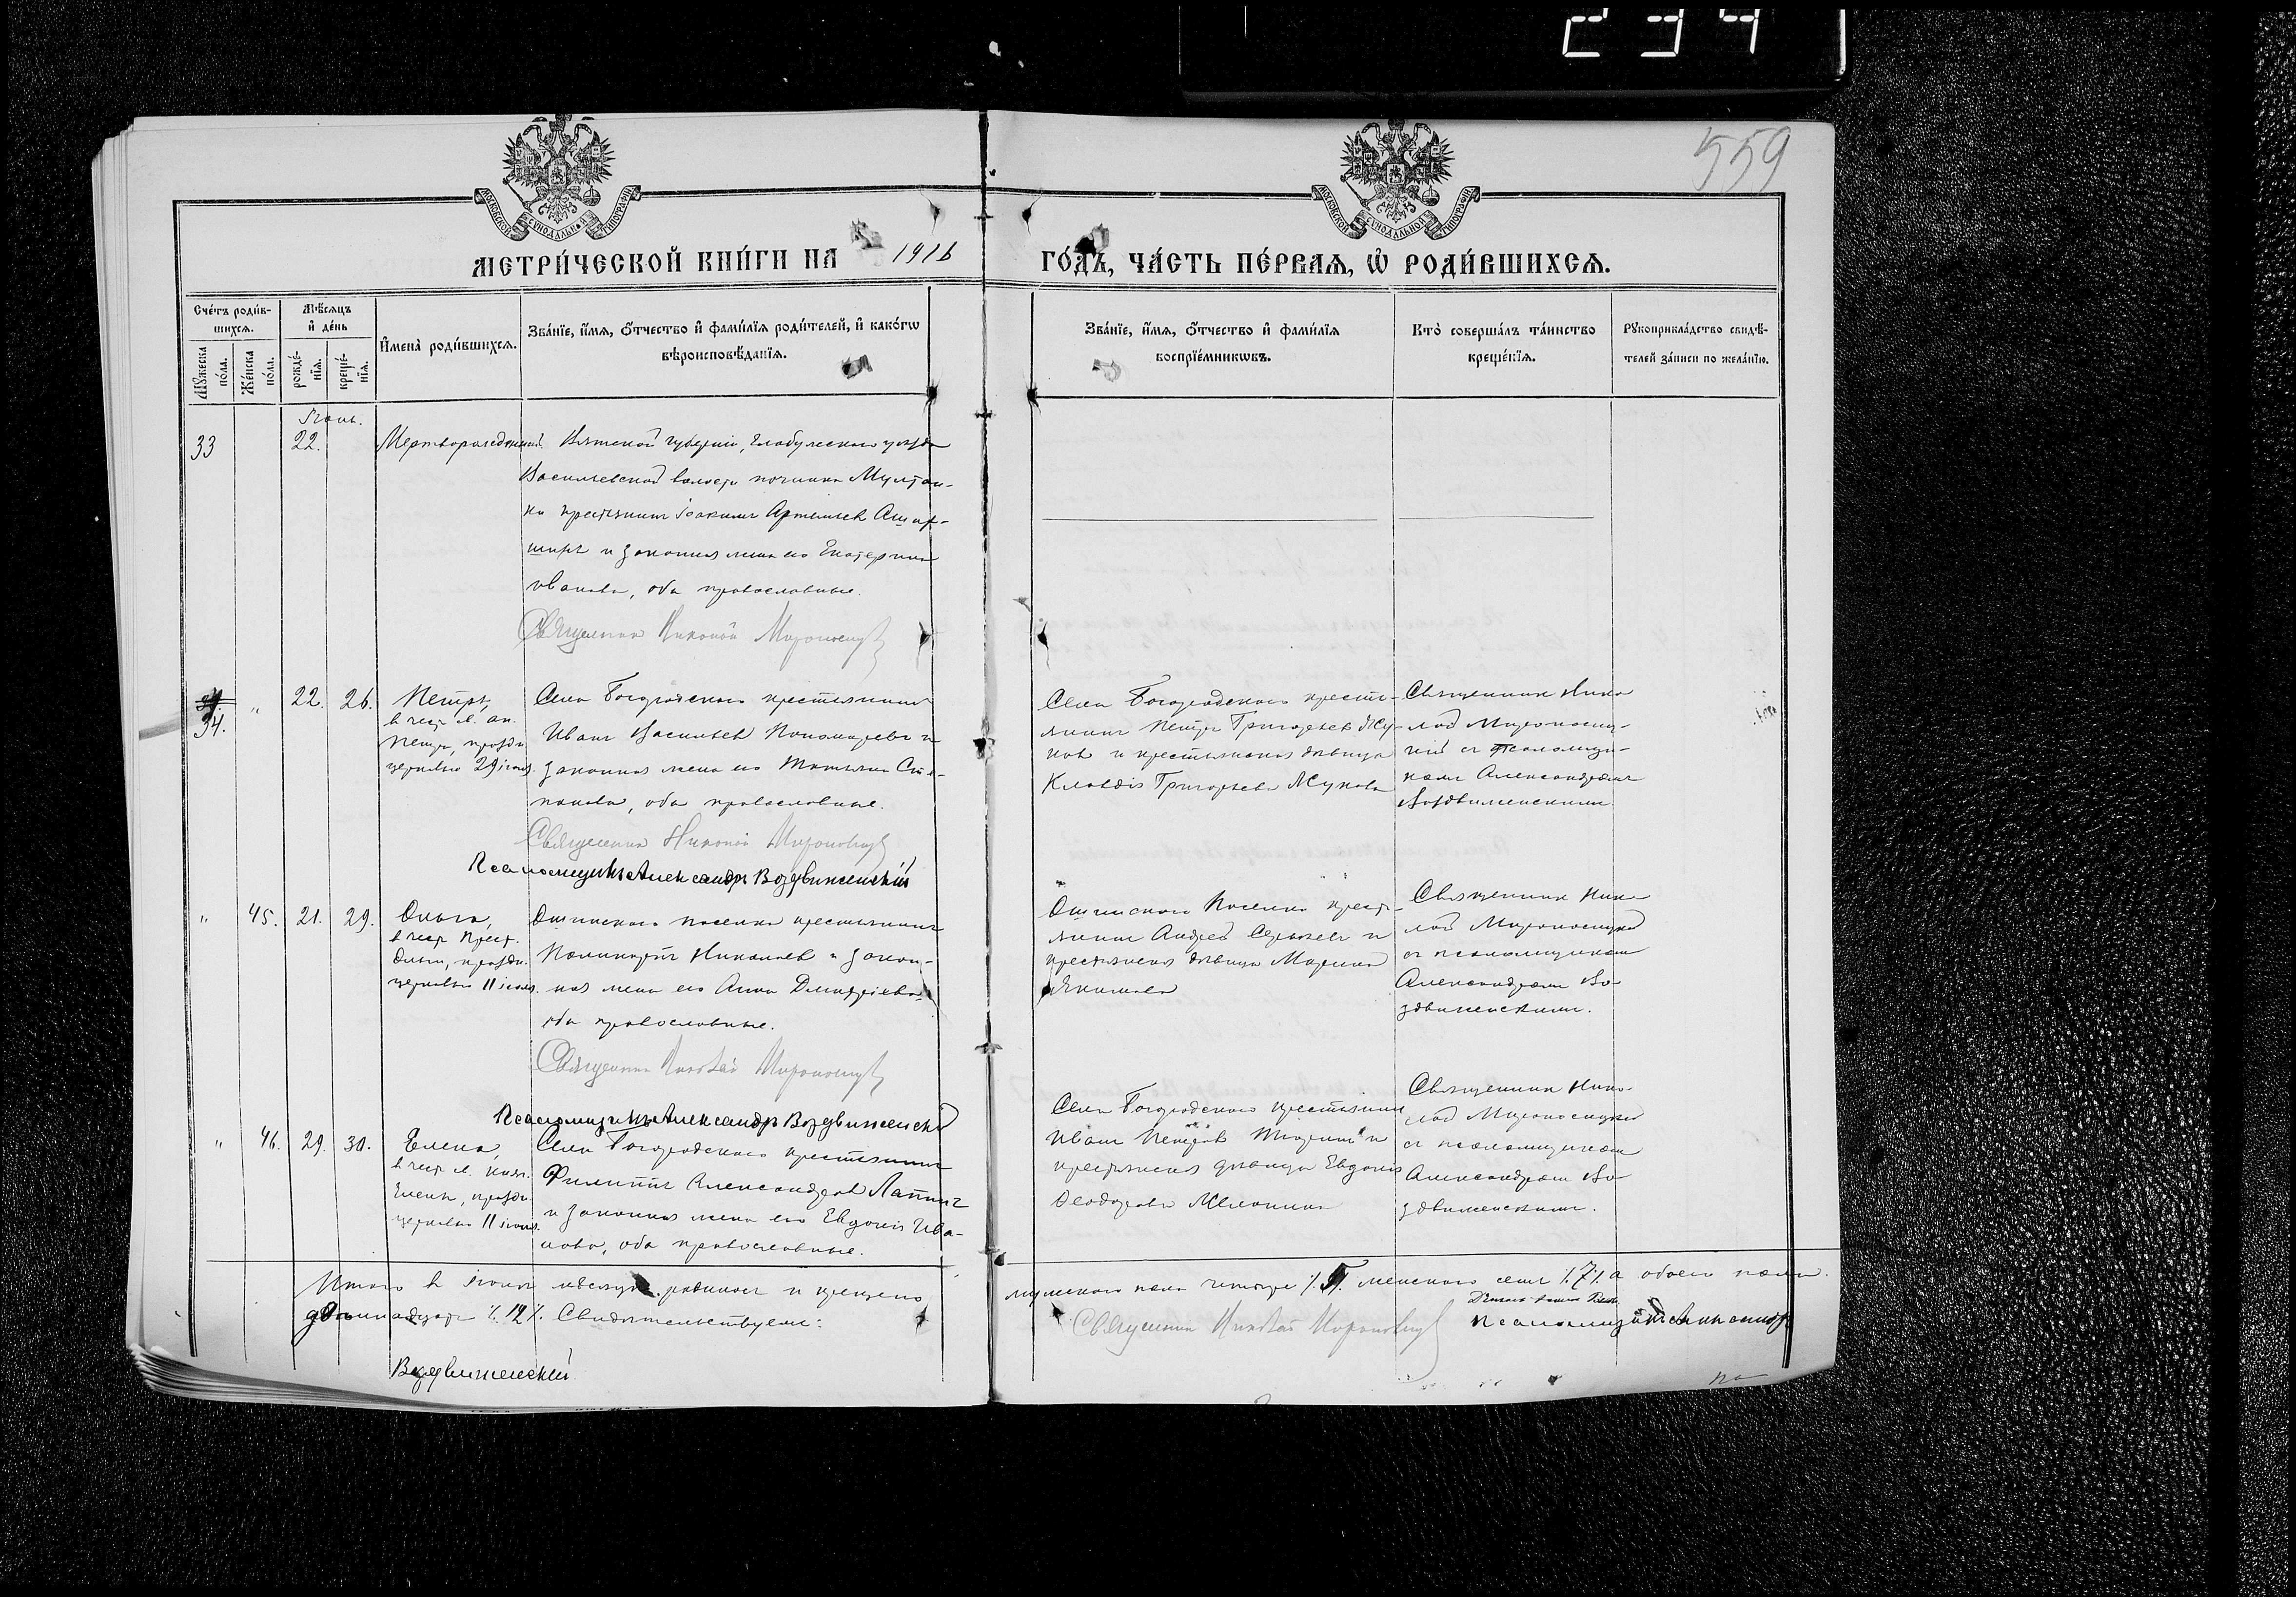 234
559
МОСКОВСКОЙ СѴНОДАЛЬНОЙ ТИПОГРАФІИ
МОСКОВСКОЙ СѴНОДАЛЬНОЙ ТИПОГРАФІИ
МЕТРИ́ЧЕСКОЙ КНИ́ГИ НА 1916
ГО́ДЪ, ЧА́СТЬ ПЕ́РВАЯ, Ѡ РОДИ́ВШИХСЯ.
Сче́тъ роди́в-
шихся.
Мꙋ́жеска
по́ла.
Же́нска
по́ла.
Мѣ́сяцъ
и҆ де́нь
рожде́-
нїя.
креще́-
нїя.
И҆мена̀ роди́вшихся.
Зва́нїе, и҆́мя, ѻ҆́тчество и҆ фами́лїя роди́телей, и҆ како́гѡ
вѣроисповѣ́данїя.
Зва́нїе, и҆́мя, ѻ҆́тчество и҆ фами́лїя
воспрїе́мникѡвъ.
Кто̀ соверша́лъ та́инство
креще́нїя.
Рꙋкоприкла́дство свидѣ́-
телей за́писи по жела́нїю.
Іюнь.
33
22.
Мертворожденный
Вятской губерніи, Елабужскаго уѣзда
Васильевской волости починка Мултан-
ки крестьянинъ Іоакимъ Артемьев
и законная жена его Екатерина
Иванова, оба православные.
Священникъ Николай Мироносицкій
34.
"
22.
26.
Петръ,
в честь св. ап.
Петра, праздн.
церковью 29 іюня.
Села Богородскаго крестьянинъ
Иванъ Васильев Пономаревъ и
законная жена его Татьяна Сте-
панова, оба православные.
Священникъ Николай Мироносицкій
Псаломщикъ Александръ Воздвиженскій
Села Богородскаго кресть-
янинъ Петръ Григорьев Жу-
ков и крестьянская дѣвица
Клавдія Григорьева Жукова
Священникъ Нико
лай Мироносиц-
кій съ псаломщи-
комъ Александромъ
Воздвиженскимъ
"
45.
21.
29.
Ольга,
в честь
Ольги, праздн.
церковью 11 іюля.
поселка крестьянинъ
Николаев и закон-
ная жена его Анна Дмитріева
оба православные.
Священникъ Николай Мироносицкій
Псаломщикъ Александръ Воздвиженскій
поселка крест-
янинъ Андрей и
крестьянская дѣвица Марина
Священникъ Нико
лай Мироносицкій
съ псаломщикомъ
Александромъ Во-
здвиженскимъ.
"
46.
29.
30.
Елена,
в честь св.
Елены, праздн.
церковью 11 іюля.
Села Богородскаго крестьянинъ
Филиппъ Александров Лапинъ
и законная жена его Евдокія Ива-
нова, оба православные.
Села Богородскаго крестьянинъ
Иванъ Петров и
крестьянская дѣвица Евдокія
Ѳеодорова
Священникъ Нико-
лай Мироносицкій
съ псаломщикомъ
Александромъ Во-
здвиженскимъ.
Итого в іюнѣ мѣсяцѣ родилось и крещено
мужескаго пола женскаго семь /:7:/ а обоего пола
двѣнадцать /:12:/. Свидѣтельствуемъ:
Священникъ Николай Мироносицкій
Псаломщикъ Александръ
Воздвиженскій